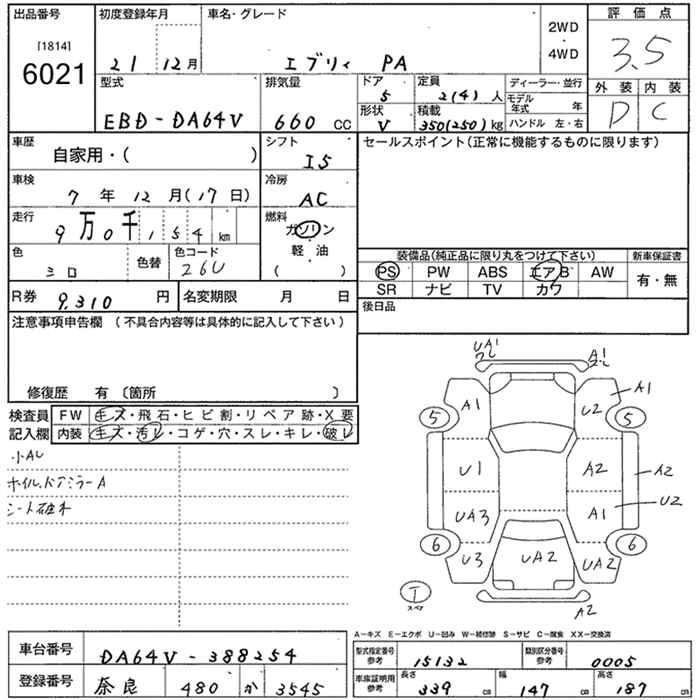 出品番号
[1814]
6021
初度登録年月
21 12月
車名・グレード
エブリィ PA
2WD
・
4WD
評価点
3.5
型式
EBD-DA64V
排気量
660 CC
ドア
5
定員
2(4) 人
ディーラー・並行
モデル年式 年
形状
V
積載
350(250)kg
ハンドル 左・右
外装 内装
D C
車歴
自家用・( )
シフト
I5
セールスポイント(正常に機能するものに限ります)
車検
7 年 12 月(17日)
冷房
AC
走行
9万0千154km
燃料
ガソリン
・
軽・油
( )
色
シロ
色替
色コード
26U
装備品(純品品に限り丸をつけて下さい)
新車保証書
PS PW ABS エアB AW
有・無
SR ナビ TV カワ
R券 9,310 円
名変期限 月 日
後日品
注意事項申告欄 (不具合内容等は具体的に記入して下さい)
修復歴 有 〔箇所 〕
検査員
記入欄
FW キズ・飛石・ヒビ割・リペア跡・X要
内装 キズ・汚レ・コゲ・穴・スレ・キレ・破レ
小AU
ホイル、ドアミラーA
シート破れ
UA1
A1
A1
U2
A1
5
5
U1
A2
A2
UA3
A1
U2
6
6
U3
UA2
UA2
A2
T
スペア
A-キズ E-エクボ U-凹み W-補修跡 S-サビ C-腐食 XX-交換済
車台番号
DA64V-388254
型式指定番号
参考
15132
類別区分番号
参考
0005
登録番号
奈良 480 か 3545
車庫証明用
参考
長さ
339 cm
幅
147 cm
高さ
187 cm